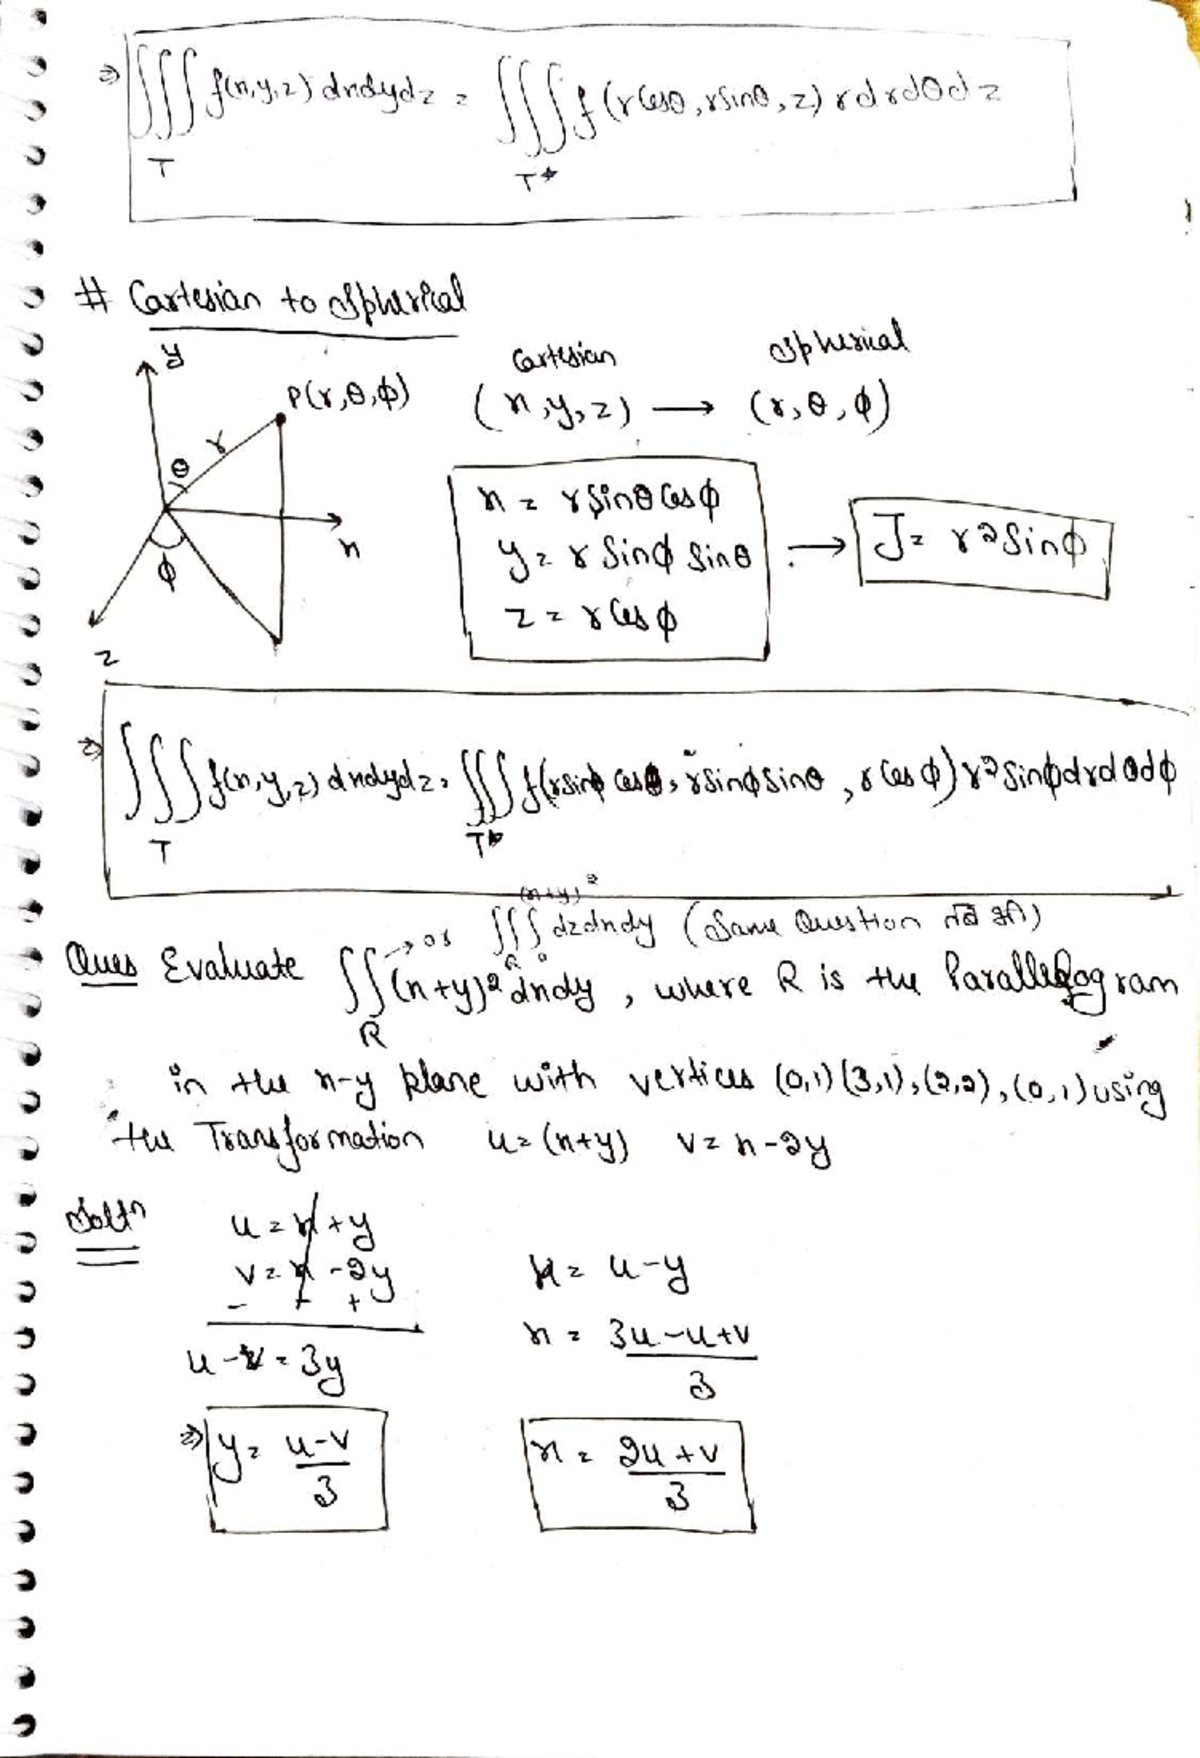 ⇒ ∭ f(x,y,z) dxdydz = ∭ f(r Cosθ, rSinθ, z) r dr dθ dz
T T*
# Cartesian to Spherical
y
P(r,θ,ϕ)
r
θ
x
ϕ
z
Cartesian Spherical
(x,y,z) ⟶ (r,θ,ϕ)
x = r Sinθ Cosϕ
y = r Sinϕ Sinθ ⟶ J = r² Sinϕ
z = r Cosϕ
⇒ ∭ f(x,y,z) dxdydz = ∭ f(rsinϕ Cosθ, rsinϕ sinθ, r Cosϕ) r² Sinϕ dr dθ dϕ
T T*
→ or ∭ dzdxdy (Same Question
(x+y)²
R 0
Ques Evaluate ∬ (x+y)² dxdy, where R is the Parallelogram
R
in the x-y plane with vertices (0,1) (3,1), (2,2), (0,1) using
the Transformation u = (x+y) v = x-2y
Solⁿ
u = x+y
v = x-2y
- - +
u-v = 3y
⇒ y = u-v/3
x = u-y
x = 3u-u+v/3
x = 2u+v/3